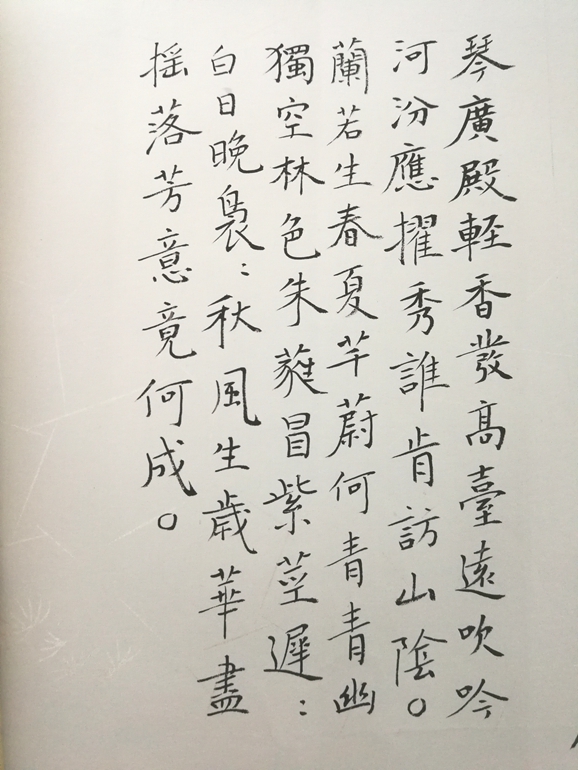 琴廣殿軽香發高臺遠吹吟
河汾應擢秀誰肯訪山陰。
蘭若生春夏芊蔚何青青幽
獨空林色朱蕤冒紫莖遲：
白日晚裊：秋風生歲華盡
搖落芳意竟何成。